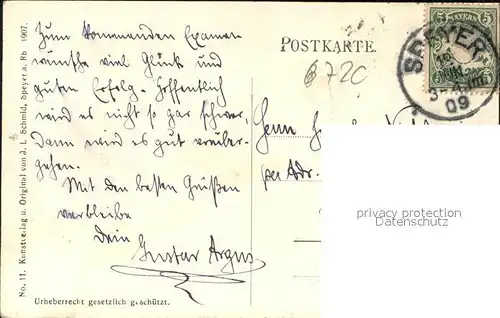 Zum kommenden Examen
wünsche viel Glück und
guten Erfolg. Hoffentlich
wird es nicht so gar schwer,
Dann wird es gut vorüber-
gehen.
Mit den besten Grüßen
verbleibe
Dein
Gustav Argus
POSTKARTE.
6720
BAYERN
SPEYER
09
Herrn
per Adr.
privacy protection
Datenschutz
No. 11. Kunstverlag u. Original von J. L. Schmid, Speyer a. Rh 1907.
Urheberrecht gesetzlich geschützt.